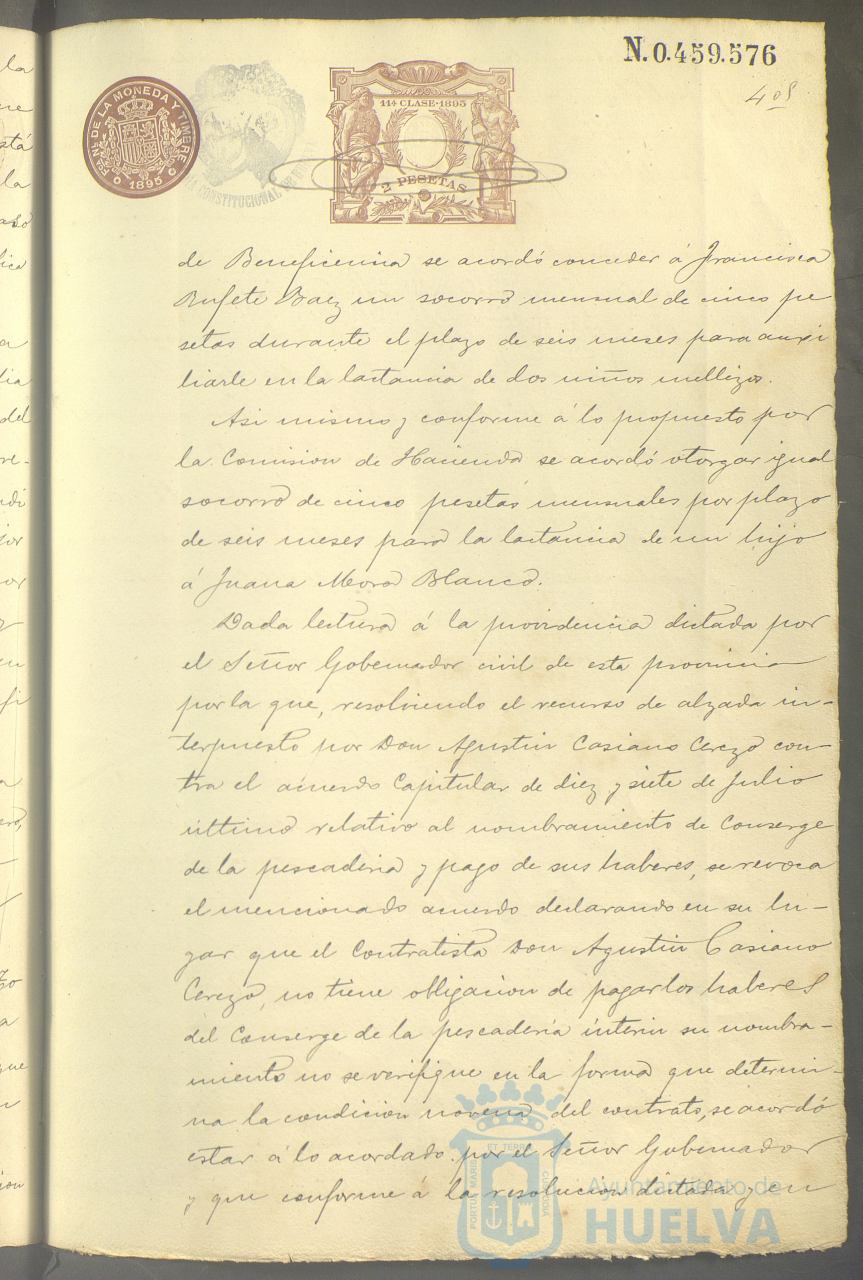 N. 0.459.576
408
FCA. NL. DE LA MONEDA Y TIMBRE
1895
CONSTITUCIONAL DE
11ª CLASE·1895
2 PESETAS
de Beneficencia se acordó conceder á Francisca
Rufete Baez un socorro mensual de cinco pe
setas durante el plazo de seis meses para auxi
liarle en la lactancia de dos niños mellizos.
Asi mismo y conforme á lo propuesto por
la Comision de Hacienda se acordó otorgar igual
socorro de cinco pesetas mensuales por plazo
de seis meses para la lactancia de un hijo
á Juana Mora Blanco.
Dada lectura á la providencia dictada por
el Señor Gobernador civil de esta provincia
por la que, resolviendo el recurso de alzada in-
terpuesto por Don Agustin Casiano Cerezo con-
tra el acuerdo Capitular de diez y siete de Julio
último relativo al nombramiento de Conserge
de la pescaderia y pago de sus haberes, se revoca
el mencionado acuerdo declarando en su lu-
gar que el Contratista Don Agustin Casiano
Cerezo, no tiene obligacion de pagar los haberes
del Conserge de la pescaderia interin su nombra-
miento no se verifique en la forma que determi-
na la condicion novena del contrato, se acordó
estar á lo acordado por el Señor Gobernador
y que conforme á la resolucion dictada y en
PORTUS MARIS
ET TERRAE
CUSTODIA
Ayuntamiento de
HUELVA